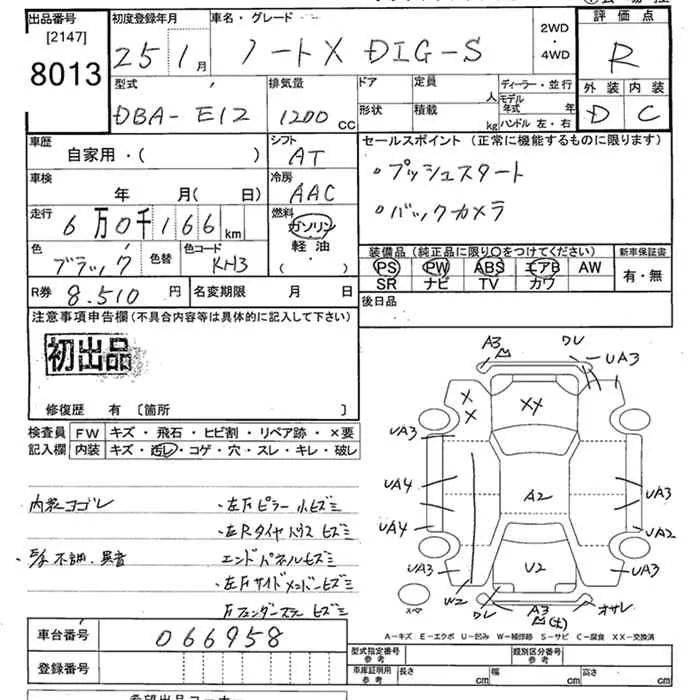 出品番号
[2147]
8013
初度登録年月
25 1月
車名・グレード
ノートX DIG-S
2WD
・
4WD
評価点
R
外装 内装
D C
型式
DBA- E12
排気量
1200 CC
ドア
形状
定員
人
積載
kg
ディーラー・並行
モデル年式 年
ハンドル 左・右
車歴
自家用・( )
シフト
AT
セールスポイント (正常に機能するものに限ります)
・プッシュスタート
・バックカメラ
車検
年 月( 日)
冷房
AAC
走行
6万0千166km
燃料
ガソリン
軽油
( ・ )
色
ブラック
色替
色コード
KH3
装備品 (純正品に限り○をつけてください)
PS PW ABS エアB AW
SR ナビ TV カワ
新車保証書
有・無
R券 8.510 円
名変期限 月 日
後日品
注意事項申告欄 (不具合内容等は具体的に記入して下さい)
初出品
修復歴 有 [箇所 ]
検査員
記入欄
FW キズ・飛石・ヒビ割・リペア跡・×要
内装 キズ・汚レ・コゲ・穴・スレ・キレ・破レ
内装ヨゴレ
・左Fピラー小ヒズミ
エンドパネルヒズミ
A3
ワレ
UA3
X
X
XX
UA3
UA4
UA4
A2
UA3
UA2
UA3
UA3
U2
W2
ワレ
A3
スペア
A-キズ E-エクボ U-凹み W-補修跡 S-サビ C-腐食 XX-交換済
車台番号
066958
登録番号
型式指定番号
参考
類別区分番号
参考
車庫証明用
参考
長さ cm
幅 cm
高さ cm